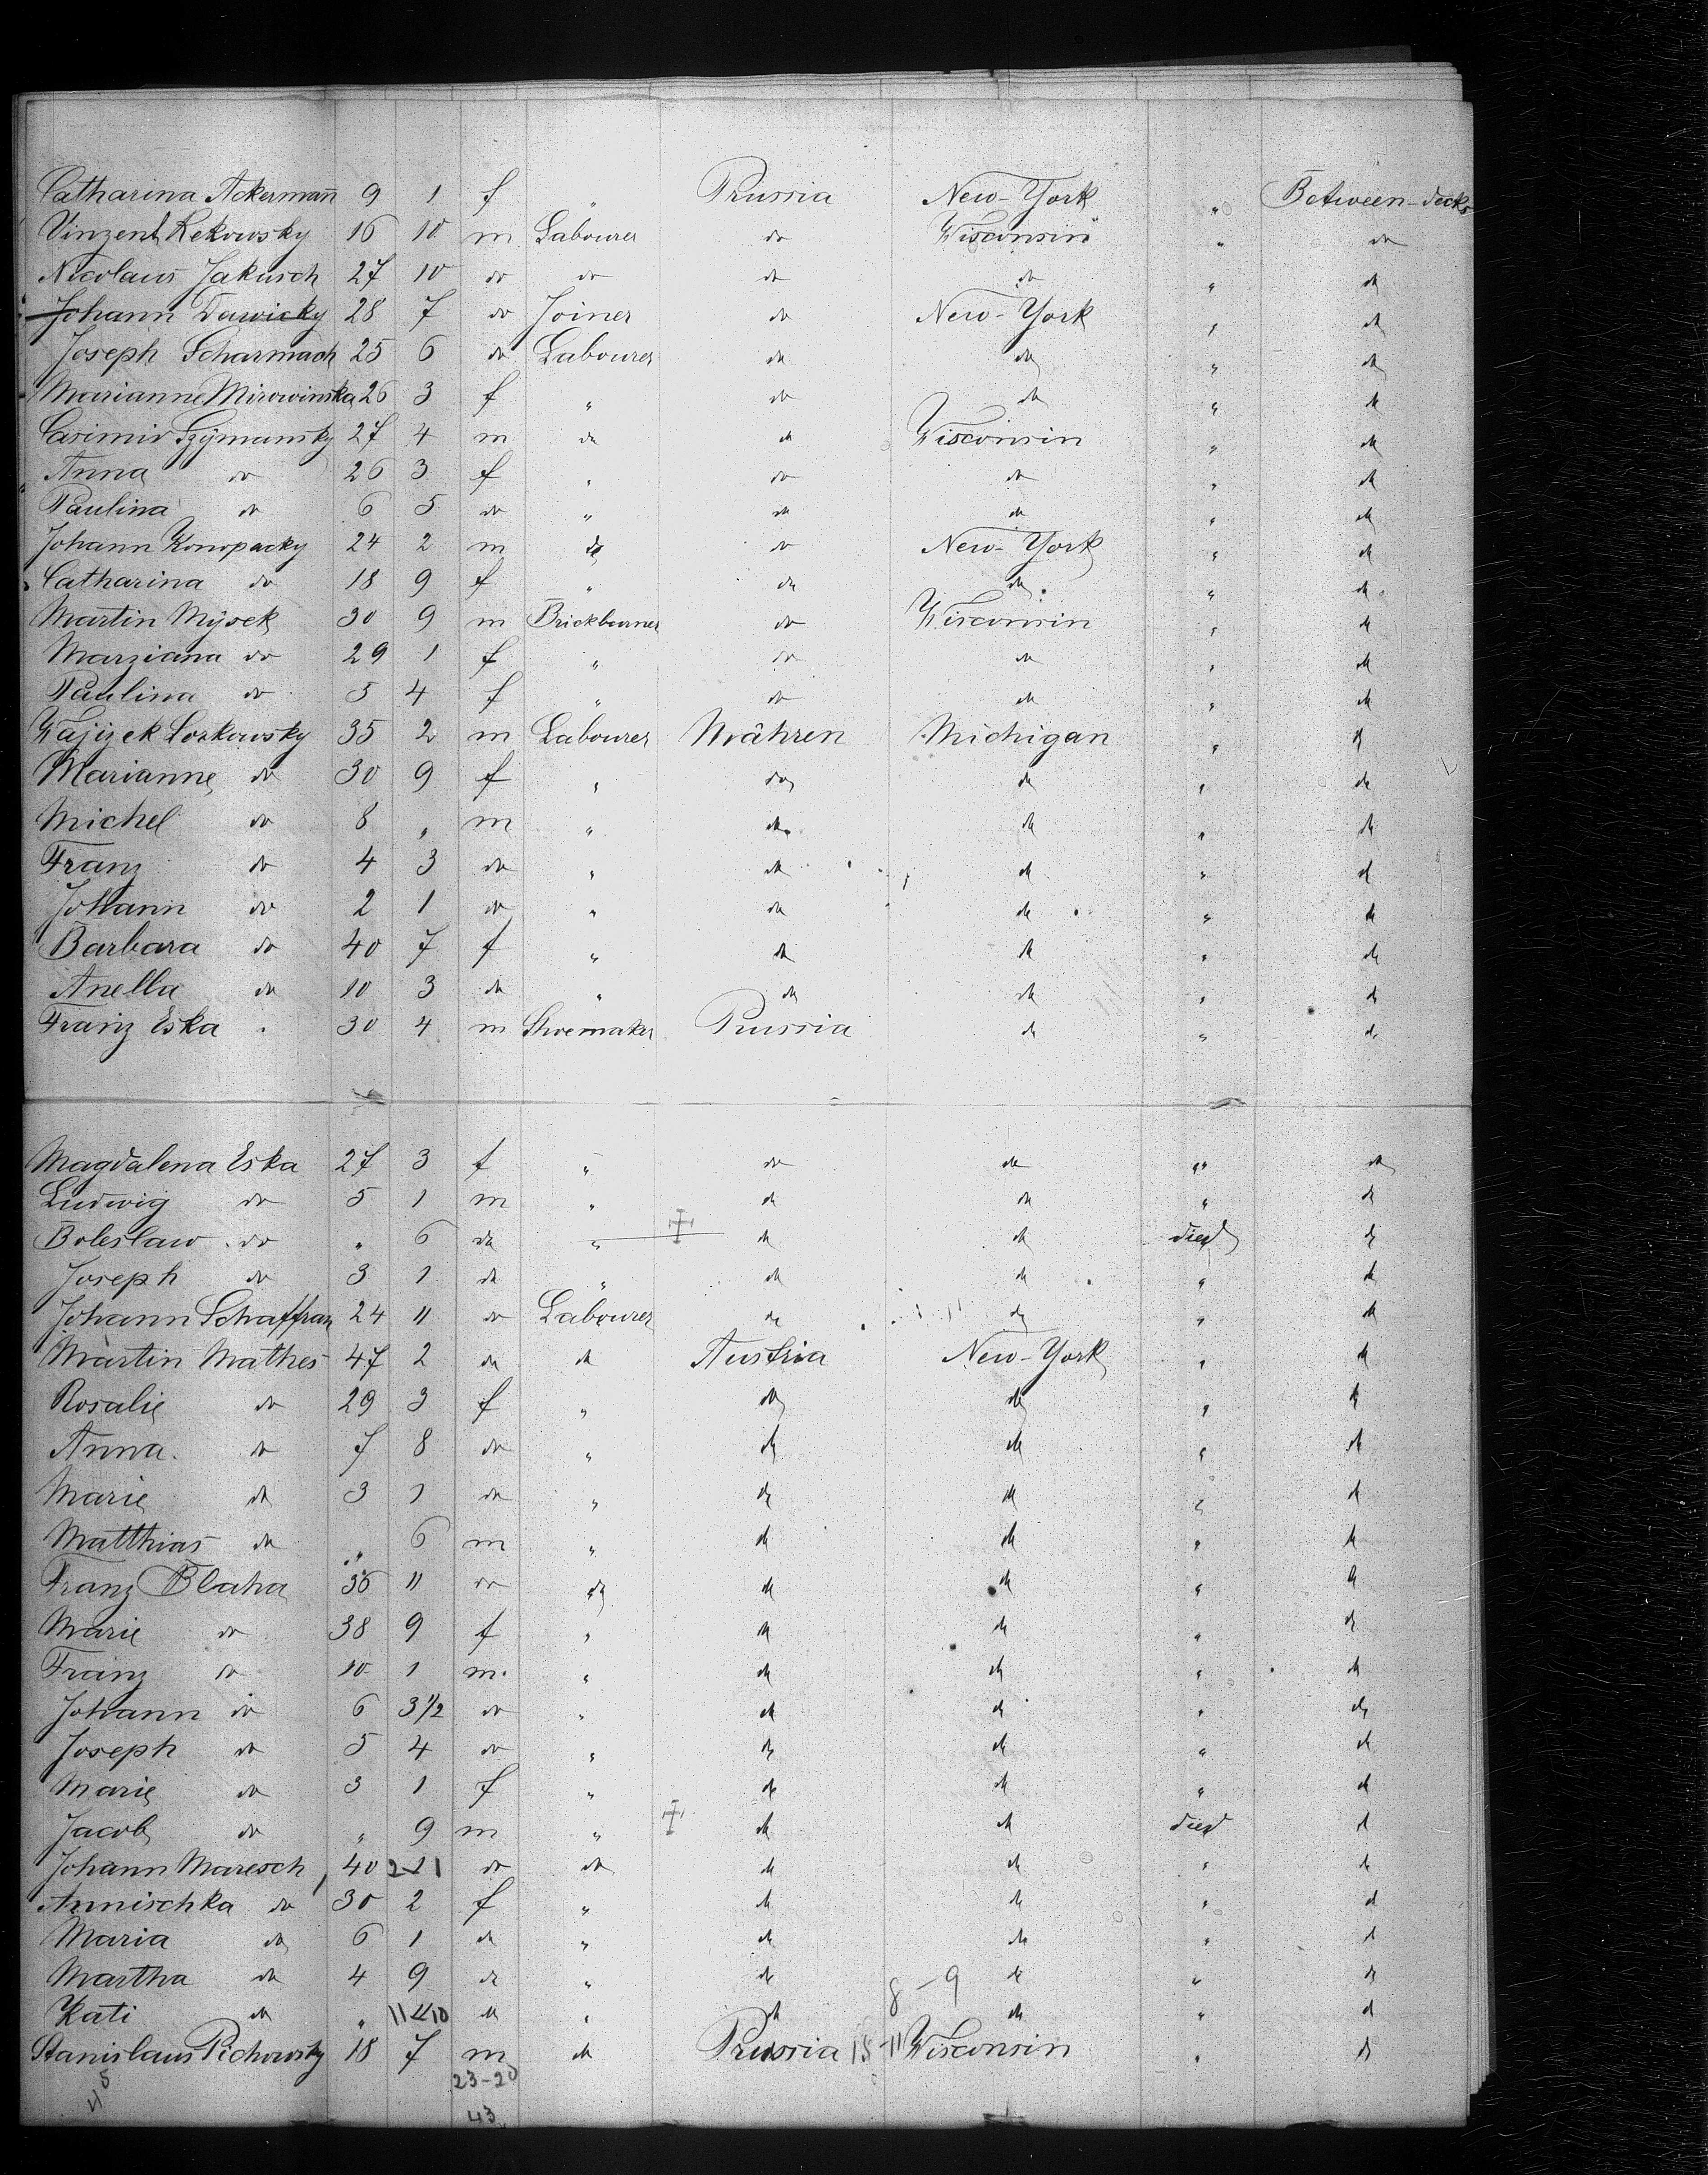 Catharina Ackermann 9 1 f " Prussia New-York " Between-decks
Vinzent Rekowsky 16 10 m Labourer do Wisconsin " do
Nicolaus Jakusch 27 10 do do do do " do
Johann Dawicky 28 7 do Joiner do New-York " do
Joseph Scharmach 25 6 do Labourer do do " do
Marianne Mirowinska 26 3 f " do do " do
Casimir Szymansky 27 4 m do do Wisconsin " do
Anna do 26 3 f " do do " do
Paulina do 6 5 do " do do " do
Johann Konopacky 24 2 m do do New-York " do
Catharina do 18 9 f " do do " do
Martin Mysek 30 9 m Brickburner do Wisconsin " do
Marziana do 29 1 f " do do " do
Paulina do 5 4 f " do do " do
Lorkowsky 35 2 m Labourer Mähren Michigan " do
Marianne do 30 9 f " do do " do
Michel do 8 " m " do do " do
Franz do 4 3 do " do do " do
Johann do 2 1 do " do do " do
Barbara do 40 7 f " do do " do
Anella do 10 3 do " do do " do
Franz Eska 30 4 m Shoemaker Prussia do " do
Magdalena Eska 27 3 f " do do " do
Ludwig do 5 1 m " do do " do
Boleslaw do " 6 do " do do died do
Joseph do 3 1 do " do do " do
Johann Schaffran 24 11 do Labourer do do " do
Martin Mathes 47 2 do do Austria New-York " do
Rosalie do 29 3 f " do do " do
Anna do 7 8 do " do do " do
Marie do 3 1 do " do do " do
Matthias do " 6 m " do do " do
Franz Blaha 36 11 do do do do " do
Marie do 38 9 f " do do " do
Franz do 10 1 m. " do do " do
Johann do 6 3 1/2 do " do do " do
Joseph do 5 4 do " do do " do
Marie do 3 1 f " do do " do
Jacob do " 9 m " do do died do
Johann Maresch 40 do do do do " do
Annischka do 30 2 f " do do " do
Maria do 6 1 do " do do " do
Martha do 4 9 do " do do " do
8-9
Kati do " do " do do " do
Stanislaus Pichowsky 18 7 m do Prussia 15-11 Wisconsin " do
23-20
43